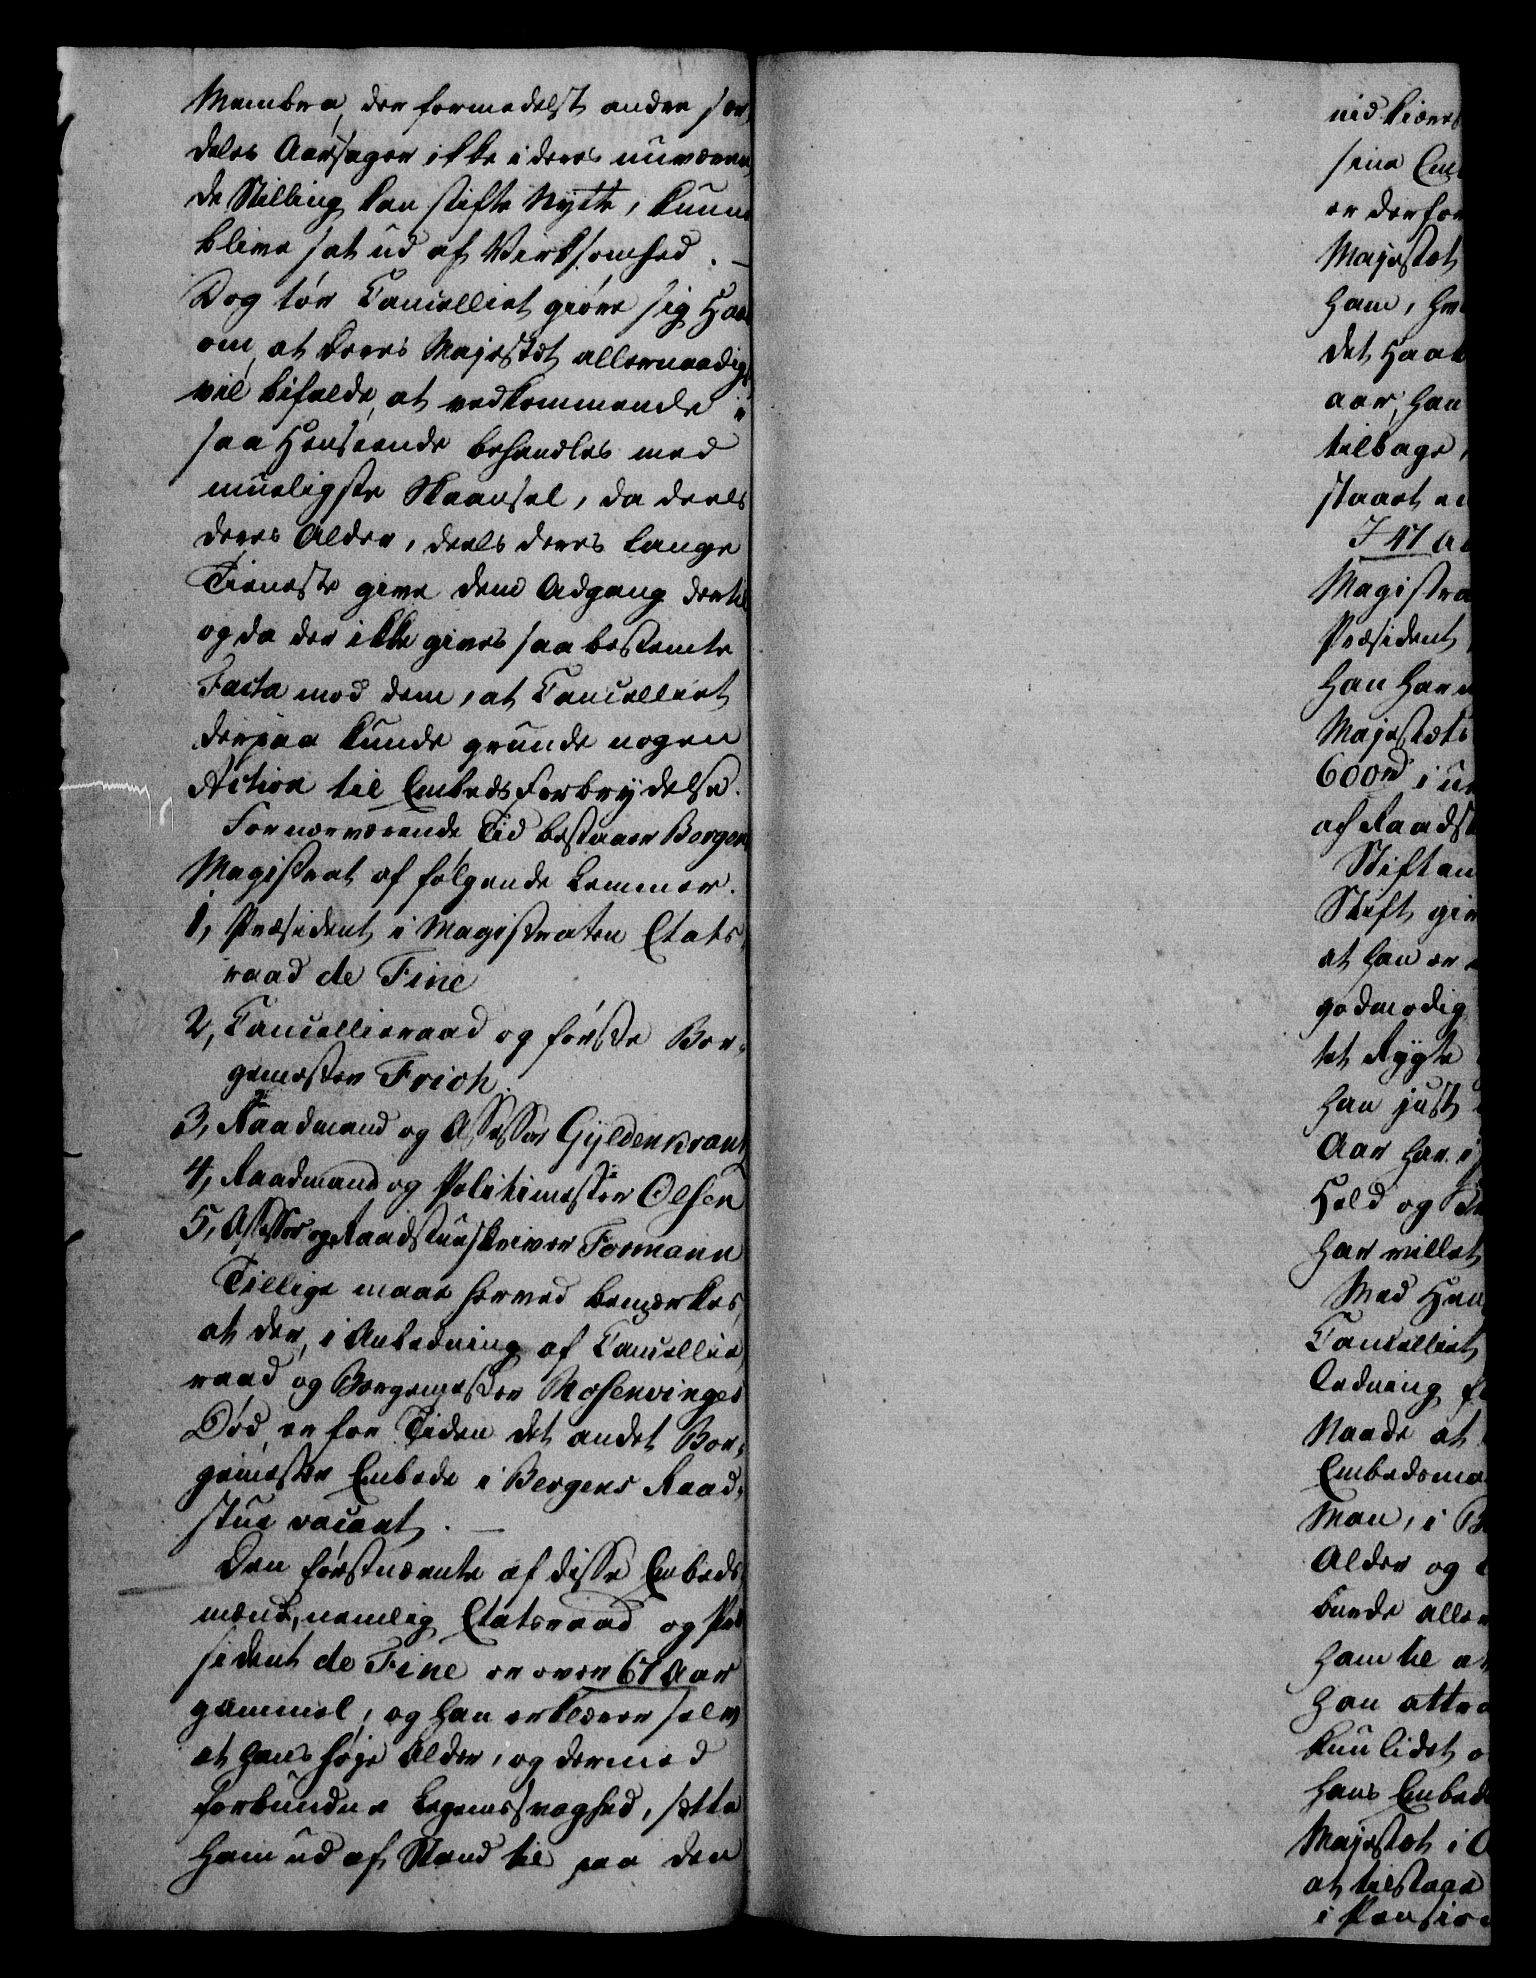 Membra, der formedelst andre sær-
deles Aarsager ikke i deres nuværen-
de Stilling kan stifte Nytte, kunne
blive sat ud af Virksomhed. —
Dog tør Cancelliet giøre sig Haab
om, at Deres Majestæt allernaadigst
vil bifalde, at vedkommende i
saa Henseende behandles med
mueligste Skaansel, da deels
deres Alder, deels deres lange
Tieneste give dem Adgang dertil
og da der ikke gives saa bestemte
Facta mod dem, at Cancelliet
derpaa kunde grunde nogen
Action til Embeds Forbrydelse.
For nærværende Tid bestaaer Bergens
Magistrat af følgende Lemmer.
1, Præsident i Magistraten Etats-
raad de Fine
2, Cancellieraad og første Bor-
gemester Frich.
3, Raadmand og Assessor Gyldenkrantz
4, Raadmand og Politimester Olsen
5, Assessor og Raadstueskriver Formann
Tillige maae herved bemærkes,
at der, i Anledning af Cancellie
raad og Borgemester Rosenvinges
Død, er for Tiden det andet Bor-
gemester Embede i Bergens Raad-
stue vacant. —
Den førstnævnte af disse Embeds-
mænd, nemlig Etatsraad og Præ
sident de Fine er over 67 Aar
gammel, og han erklærer selv
at hans høje Alder, og dermed
forbundne Legemssvaghed, sætte
ham ud af Stand til paa den
nid kiæres
sine Em
er derfor
Majestæt
ham, hv
det Haab
aar, han
tilbage,
staaet e
I 47 A
Magistra
Præsident
han har
Majestæts
600rd i
af Raadst
Stiftam
Stift, giv
at han er
godmodig
tet Rygte
han just
Aar har i
Held og
har villet
Med Hen
Cancelliet
ledning f
Naade at
Embedsma
Man, i B
Alder og
burde aller
ham til at
han attra
kun lidet
hans Embed
Majestæt i
at tilstaae
i Pension